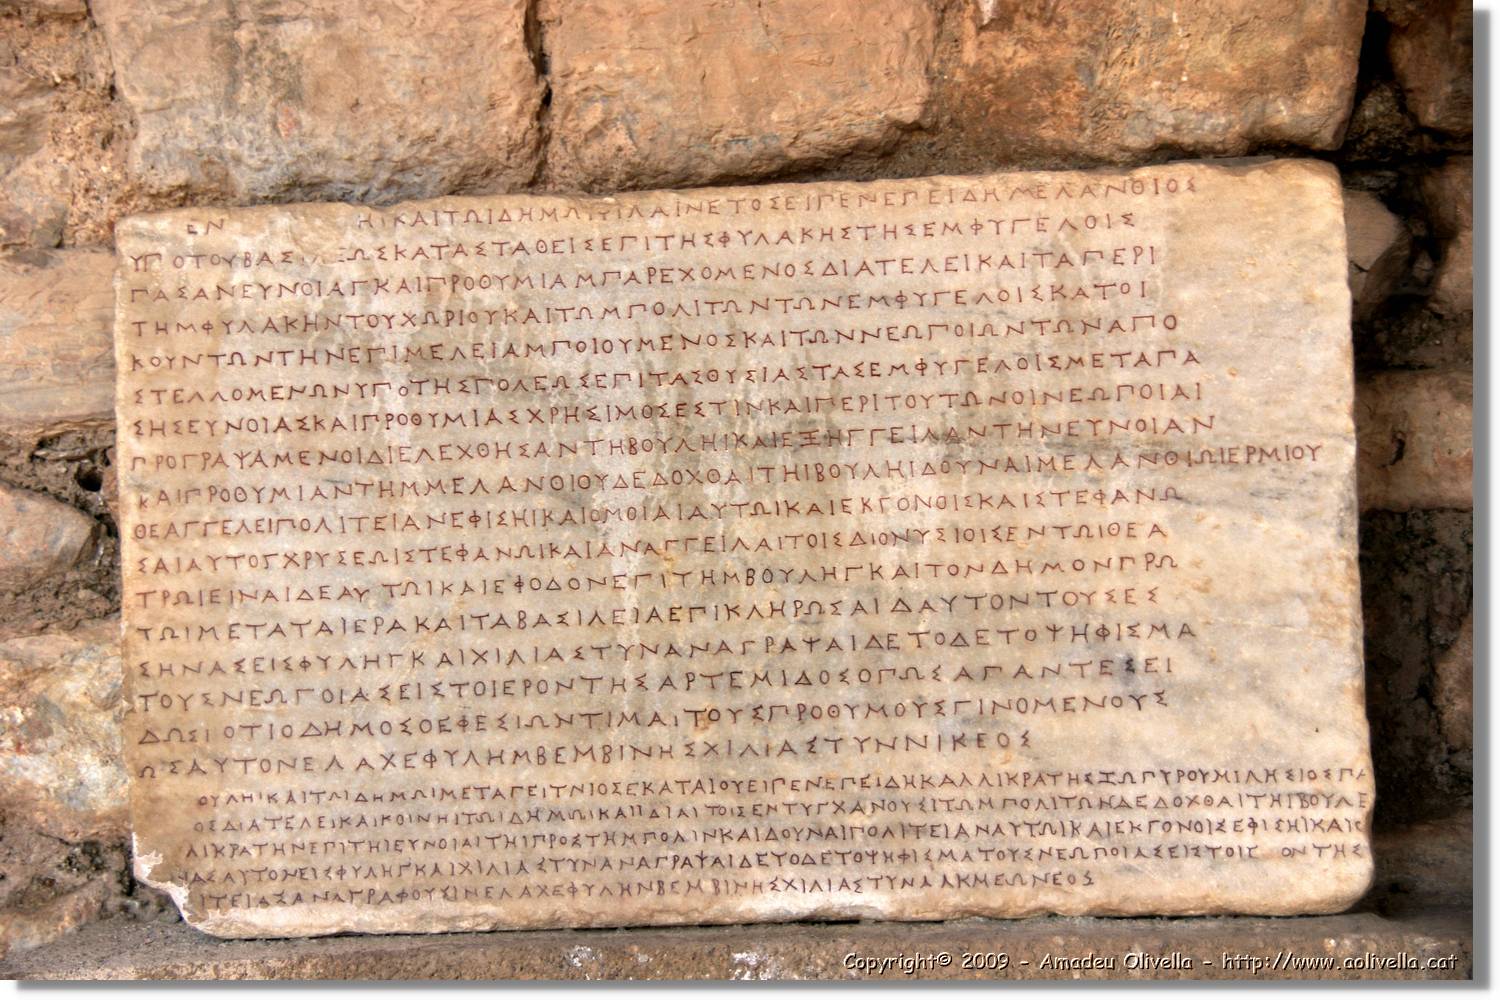 ΕΝ ΗΙΚΑΙΤΩΙΔΗΜΩΙΦΙΛΑΙΝΕΤΟΣΕΙΠΕΝΕΠΕΙΔΗΜΕΛΑΝΘΙΟΣ
ΥΠΟΤΟΥΒΑΣΙΛΕΩΣΚΑΤΑΣΤΑΘΕΙΣΕΠΙΤΗΣΦΥΛΑΚΗΣΤΗΣΕΜΦΥΓΕΛΟΙΣ
ΠΑΣΑΝΕΥΝΟΙΑΓΚΑΙΠΡΟΘΥΜΙΑΜΠΑΡΕΧΟΜΕΝΟΣΔΙΑΤΕΛΕΙΚΑΙΤΑΠΕΡΙ
ΤΗΜΦΥΛΑΚΗΝΤΟΥΧΩΡΙΟΥΚΑΙΤΩΜΠΟΛΙΤΩΝΤΩΝΕΜΦΥΓΕΛΟΙΣΚΑΤΟΙ
ΚΟΥΝΤΩΝΤΗΝΕΠΙΜΕΛΕΙΑΜΠΟΙΟΥΜΕΝΟΣΚΑΙΤΩΝΝΕΩΠΟΙΩΝΤΩΝΑΠΟ
ΣΤΕΛΛΟΜΕΝΩΝΥΠΟΤΗΣΠΟΛΕΩΣΕΠΙΤΑΣΘΥΣΙΑΣΤΑΣΕΜΦΥΓΕΛΟΙΣΜΕΤΑΠΑ
ΣΗΣΕΥΝΟΙΑΣΚΑΙΠΡΟΘΥΜΙΑΣΧΡΗΣΙΜΟΣΕΣΤΙΝΚΑΙΠΕΡΙΤΟΥΤΩΝΟΙΝΕΩΠΟΙΑΙ
ΠΡΟΓΡΑΨΑΜΕΝΟΙΔΙΕΛΕΧΘΗΣΑΝΤΗΒΟΥΛΗΙΚΑΙΕΞΗΓΓΕΙΛΑΝΤΗΝΕΥΝΟΙΑΝ
ΚΑΙΠΡΟΘΥΜΙΑΝΤΗΜΜΕΛΑΝΘΙΟΥΔΕΔΟΧΘΑΙΤΗΙΒΟΥΛΗΙΔΟΥΝΑΙΜΕΛΑΝΘΙΩΙΕΡΜΙΟΥ
ΘΕΑΓΓΕΛΕΙΠΟΛΙΤΕΙΑΝΕΦΙΣΗΙΚΑΙΟΜΟΙΑΙΑΥΤΩΙΚΑΙΕΚΓΟΝΟΙΣΚΑΙΣΤΕΦΑΝΩ
ΣΑΙΑΥΤΟΓΧΡΥΣΕΩΙΣΤΕΦΑΝΩΙΚΑΙΑΝΑΓΓΕΙΛΑΙΤΟΙΣΔΙΟΝΥΣΙΟΙΣΕΝΤΩΙΘΕΑ
ΤΡΩΙΕΙΝΑΙΔΕΑΥΤΩΙΚΑΙΕΦΟΔΟΝΕΠΙΤΗΜΒΟΥΛΗΓΚΑΙΤΟΝΔΗΜΟΝΠΡΩ
ΤΩΙΜΕΤΑΤΑΙΕΡΑΚΑΙΤΑΒΑΣΙΛΕΙΑΕΠΙΚΛΗΡΩΣΑΙΔΑΥΤΟΝΤΟΥΣΕΣ
ΣΗΝΑΣΕΙΣΦΥΛΗΓΚΑΙΧΙΛΙΑΣΤΥΝΑΝΑΓΡΑΨΑΙΔΕΤΟΔΕΤΟΨΗΦΙΣΜΑ
ΤΟΥΣΝΕΩΠΟΙΑΣΕΙΣΤΟΙΕΡΟΝΤΗΣΑΡΤΕΜΙΔΟΣΟΠΩΣΑΠΑΝΤΕΣΕΙ
ΔΩΣΙΟΤΙΟΔΗΜΟΣΟΕΦΕΣΙΩΝΤΙΜΑΙΤΟΥΣΠΡΟΘΥΜΟΥΣΓΙΝΟΜΕΝΟΥΣ
ΩΣΑΥΤΟΝΕΛΑΧΕΦΥΛΗΜΒΕΜΒΙΝΗΣΧΙΛΙΑΣΤΥΝΝΙΚΕΟΣ
ΟΥΛΗΙΚΑΙΤΩΙΔΗΜΩΙΜΕΤΑΓΕΙΤΝΙΟΣΕΚΑΤΑΙΟΥΕΙΠΕΝΕΠΕΙΔΗΚΑΛΛΙΚΡΑΤΗΣΞΩΠΥΡΟΥΜΙΛΗΣΙΟΣΠΑ
ΟΣΔΙΑΤΕΛΕΙΚΑΙΚΟΙΝΗΙΤΩΙΔΗΜΩΙΚΑΙΙΔΙΑΙΤΟΙΣΕΝΤΥΓΧΑΝΟΥΣΙΤΩΜΠΟΛΙΤΩΝΔΕΔΟΧΘΑΙΤΗΙΒΟΥΛΕ
ΛΙΚΡΑΤΗΝΕΠΙΤΗΙΕΥΝΟΙΑΙΤΗΙΠΡΟΣΤΗΜΠΟΛΙΝΚΑΙΔΟΥΝΑΙΠΟΛΙΤΕΙΑΝΑΥΤΩΙΚΑΙΕΚΓΟΝΟΙΣΕΦΙΣΗΙΚΑΙΟ
ΑΣΑΥΤΟΝΕΙΣΦΥΛΗΓΚΑΙΧΙΛΙΑΣΤΥΝΑΝΑΓΡΑΨΑΙΔΕΤΟΔΕΤΟΨΗΦΙΣΜΑΤΟΥΣΝΕΩΠΟΙΑΣΕΙΣΤΟΙΕ ΟΝΤΗΣ
ΙΤΕΙΑΣΑΝΑΓΡΑΦΟΥΣΙΝΕΛΑΧΕΦΥΛΗΝΒΕΜΒΙΝΗΣΧΙΛΙΑΣΤΥΝΑΛΚΜΕΩΝΕΟΣ
Copyright© 2009 - Amadeu Olivella - http://www.aolivella.cat